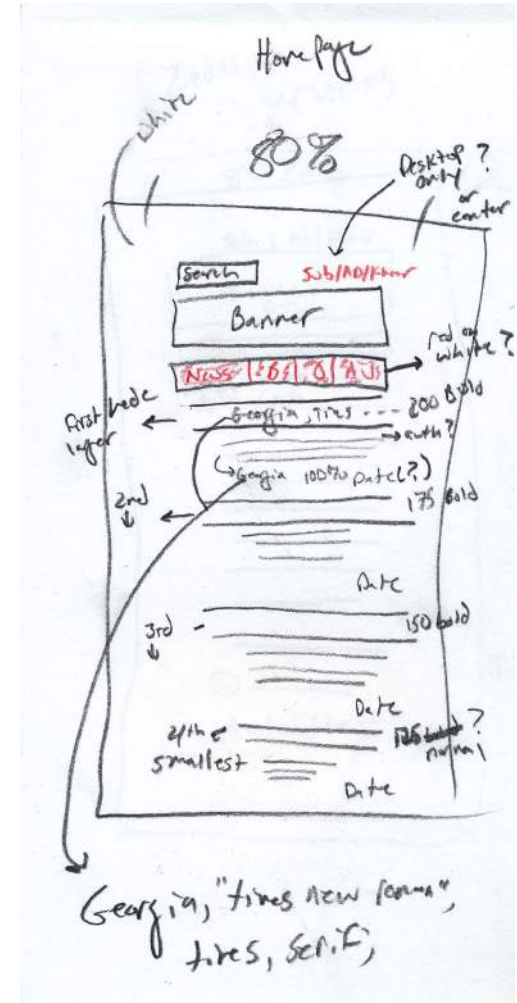 Home Page
white
80%
Desktop ?
only
or
center
Search
Sub/AD/
Banner
red on
white ?
News
First hede
larger
Georgia, Times
200 Bold
auth ?
Georgia 100% Date (?)
2nd
175 Bold
Date
3rd
150 bold
Date
4th
smallest
?
normal
Date
Georgia, "times new roman",
times, serif,